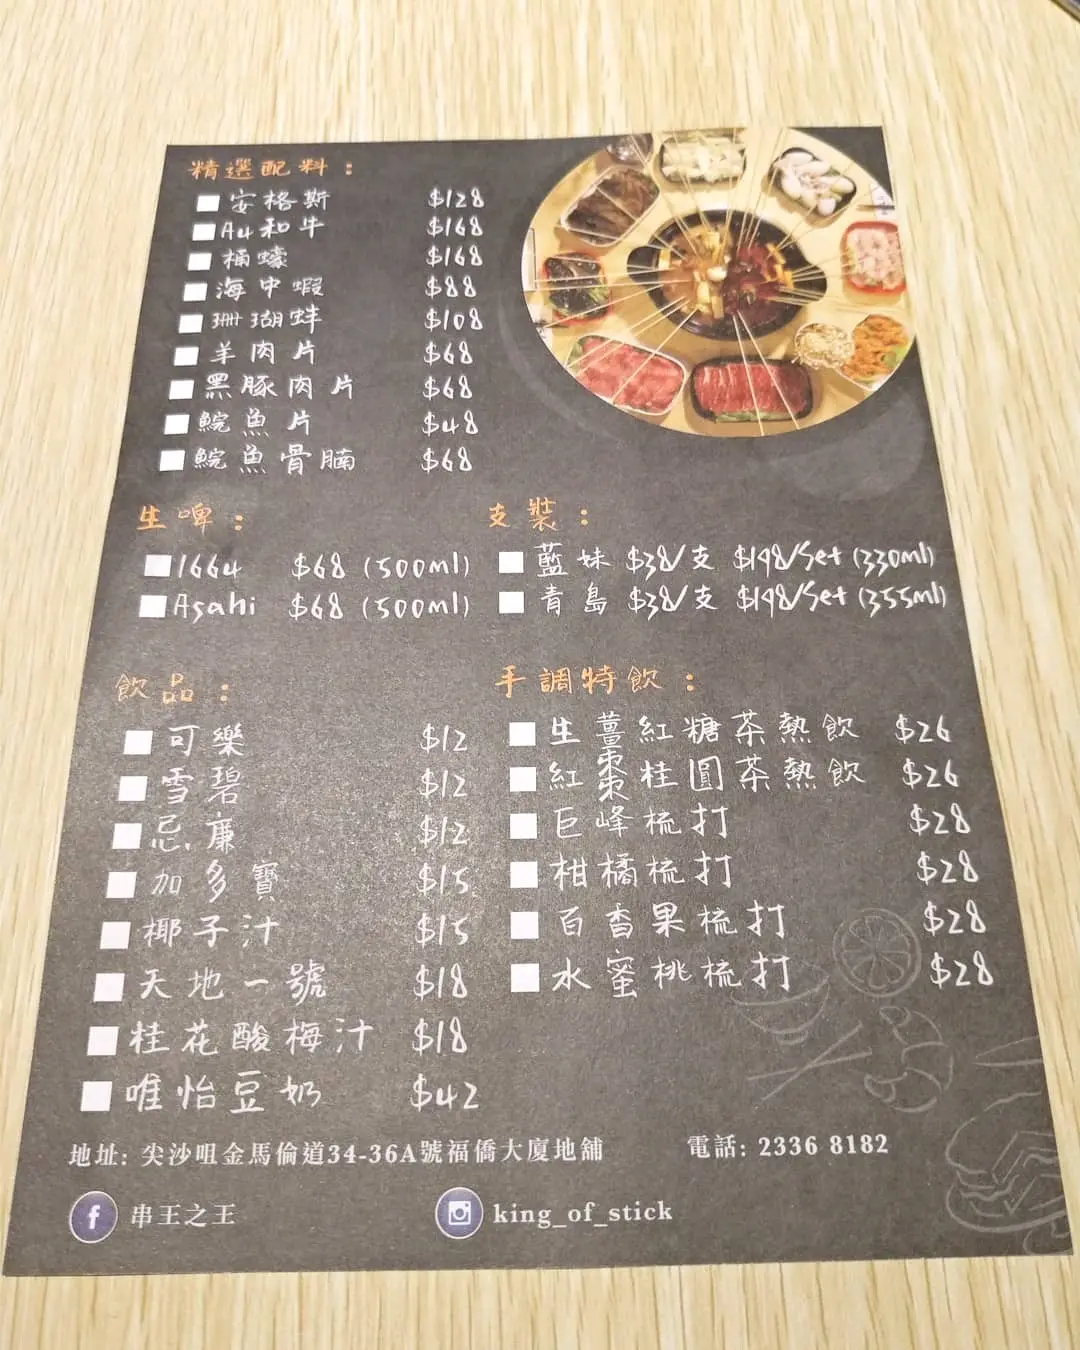 精選配料：
安格斯 $128
A4和牛 $168
桶蠔 $168
海中蝦 $88
珊瑚蚌 $108
羊肉片 $68
黑豚肉片 $68
鯇魚片 $48
鯇魚骨腩 $68
生啤：
1664 $68 (500ml)
Asahi $68 (500ml)
支裝：
藍妹 $38/支 $198/Set (330ml)
青島 $38/支 $198/Set (355ml)
飲品：
可樂 $12
雪碧 $12
忌廉 $12
加多寶 $15
椰子汁 $15
天地一號 $18
桂花酸梅汁 $18
唯怡豆奶 $42
手調特飲：
生薑紅糖茶熱飲 $26
紅棗桂圓茶熱飲 $26
巨峰梳打 $28
柑橘梳打 $28
百香果梳打 $28
水蜜桃梳打 $28
地址: 尖沙咀金馬倫道34-36A號福僑大廈地舖
電話: 2336 8182
串王之王
king_of_stick